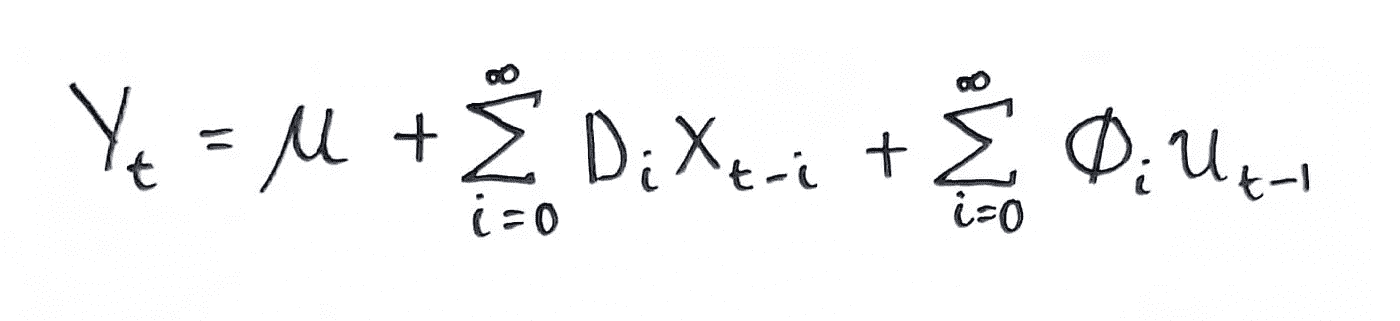 Y_t = μ + \sum_{i=0}^{∞} D_i X_{t-i} + \sum_{i=0}^{∞} Φ_i u_{t-1}